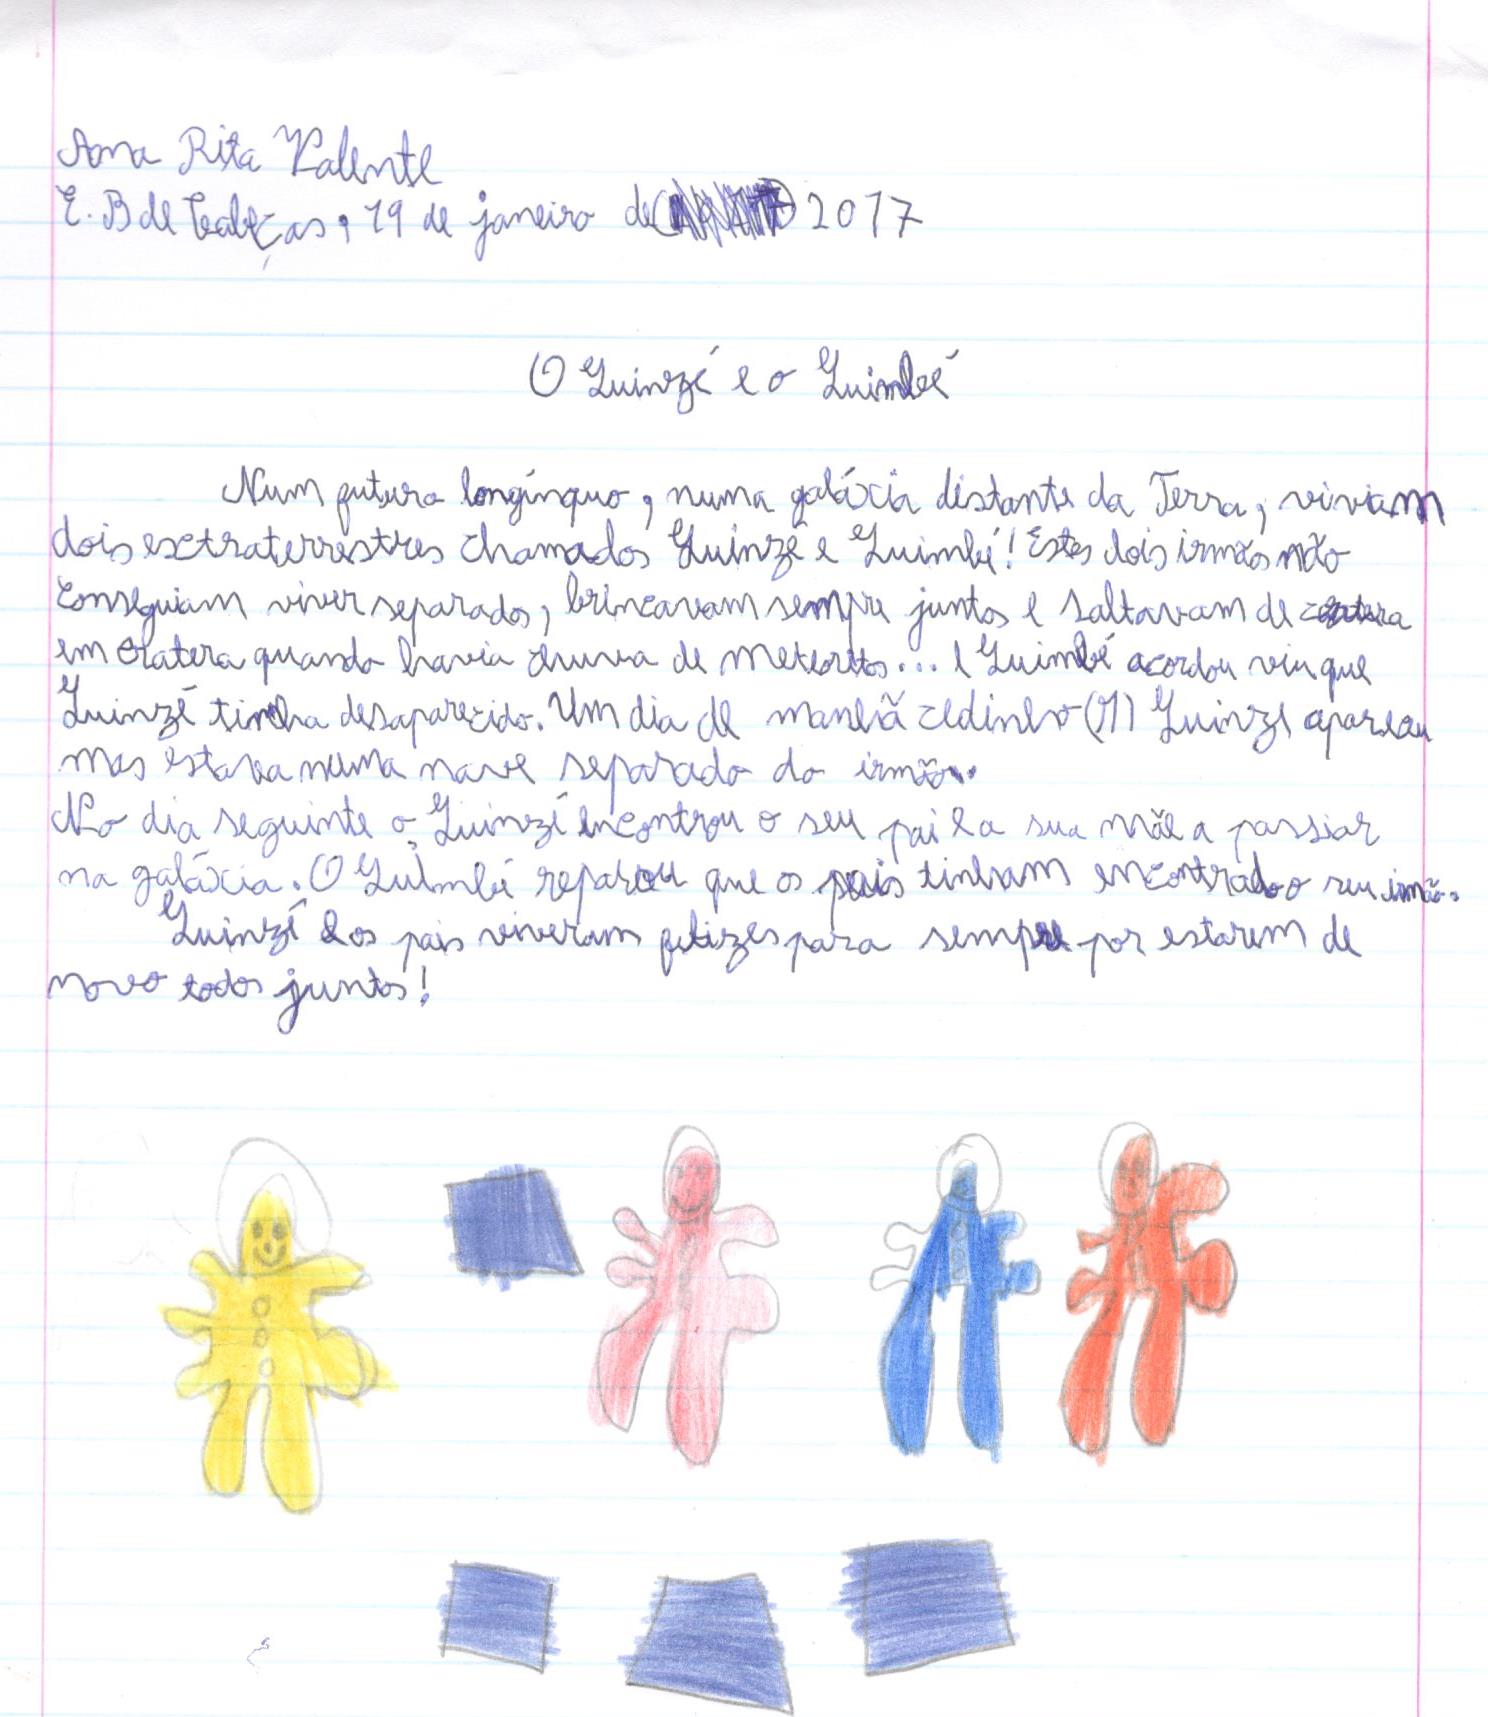 Ana Rita Valente
E. B de Cabeças, 19 de janeiro de 2017
O Guinzé e o Guimbé
Num futuro longínquo, numa galáxia distante da Terra, viviam
dois extraterrestres chamados Guinzé e Guimbé! Estes dois irmãos não
conseguiam viver separados, brincavam sempre juntos e saltavam de
em cratera quando havia chuva de meteoritos... e Guimbé acordou viu que
Guinzé tinha desaparecido. Um dia de manhã cedinho Guinzé apareceu
mas estava numa nave separado do irmão.
No dia seguinte o Guinzé encontrou o seu pai e a sua mãe a passiar
na galáxia. O Guimbé reparou que os pais tinham encontrado o seu irmão.
Guinzé e os pais viveram felizes para sempre por estarem de
novo todos juntos!